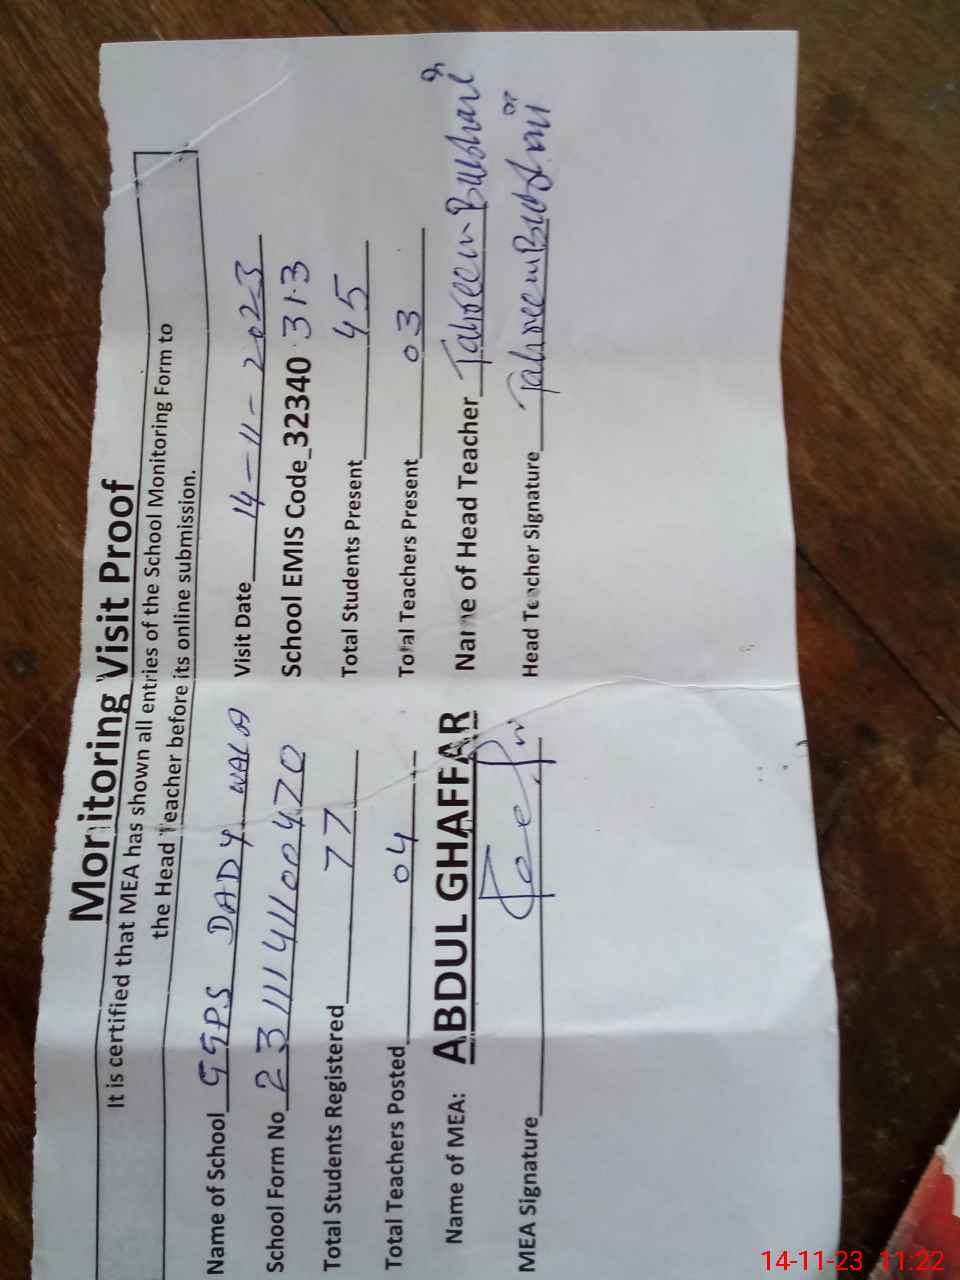 Monitoring Visit Proof
It is certified that MEA has shown all entries of the School Monitoring Form to
the Head Teacher before its online submission.
Name of School GGPS DADY WALA Visit Date 14-11-2023
School Form No 2311141100470 School EMIS Code 32340313
Total Students Registered 77 Total Students Present 45
Total Teachers Posted 04 Total Teachers Present 03
Name of MEA: ABDUL GHAFFAR Name of Head Teacher Tahreem Bukhari
MEA Signature Head Teacher Signature Tahreem Bukhari
14-11-23 11:22